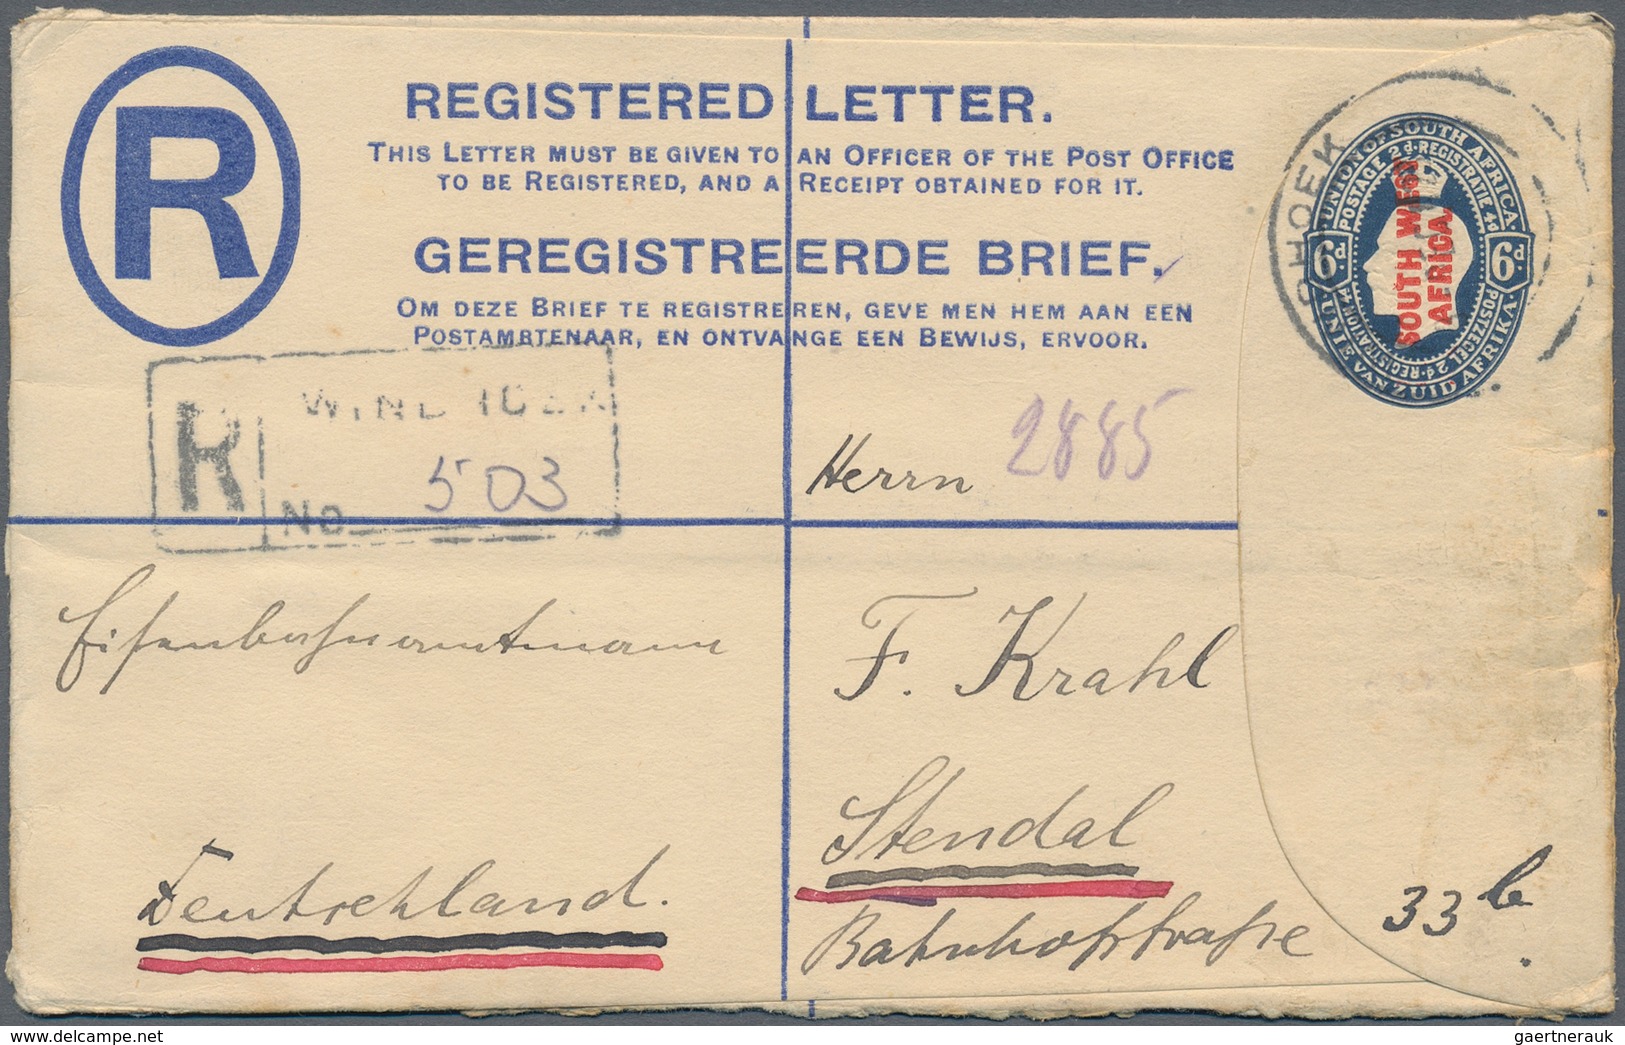 R
REGISTERED LETTER.
THIS LETTER MUST BE GIVEN TO AN OFFICER OF THE POST OFFICE
TO BE REGISTERED, AND A RECEIPT OBTAINED FOR IT.
GEREGISTREERDE BRIEF.
OM DEZE BRIEF TE REGISTREREN, GEVE MEN HEM AAN EEN
POSTAMBTENAAR, EN ONTVANGE EEN BEWIJS, ERVOOR.
HOEK
UNION OF SOUTH AFRICA
POSTAGE 2d REGISTRATIE 4d
6d 6d
SOUTH WEST
AFRICA.
POSTZEGEL 2d REGISTRATION 4d
UNIE VAN ZUID AFRIKA
R
No 503
2885
Herrn
Eisenbahnamtmann
F. Krahl
Stendal
Deutschland.
Bahnhofstraße 33 b.
www.delcampe.net
gaertnerauk